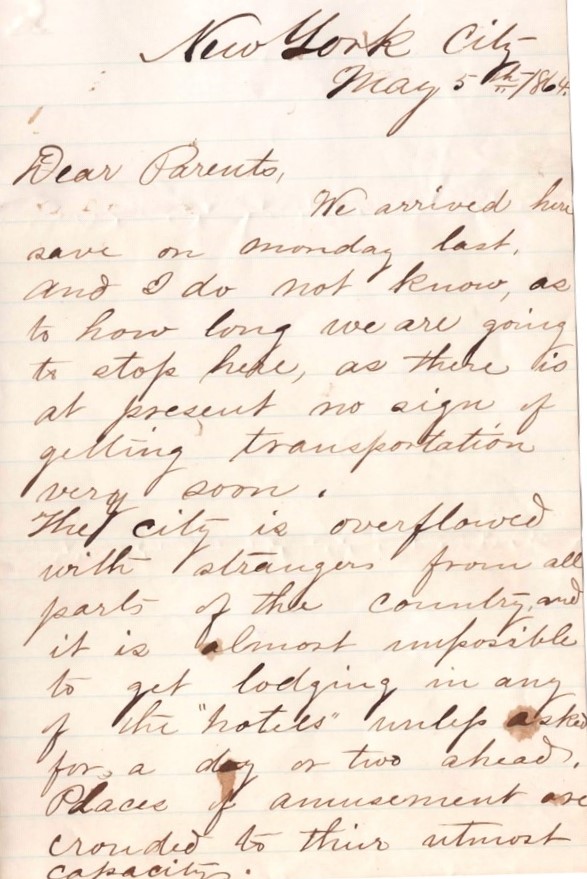 New York City
May 5th/1864.
Dear Parents,
We arrived here
save on monday last,
and I do not know, as
to how long we are going
to stop here, as there is
at present no sign of
getting transportation
very soon.
The city is overflowed
with strangers from all
parts of the country, and
it is almost impossible
to get lodging in any
of the "hotels" unless asked
for, a day or two ahead.
Places of amusement are
crouded to thier utmost
capacity.